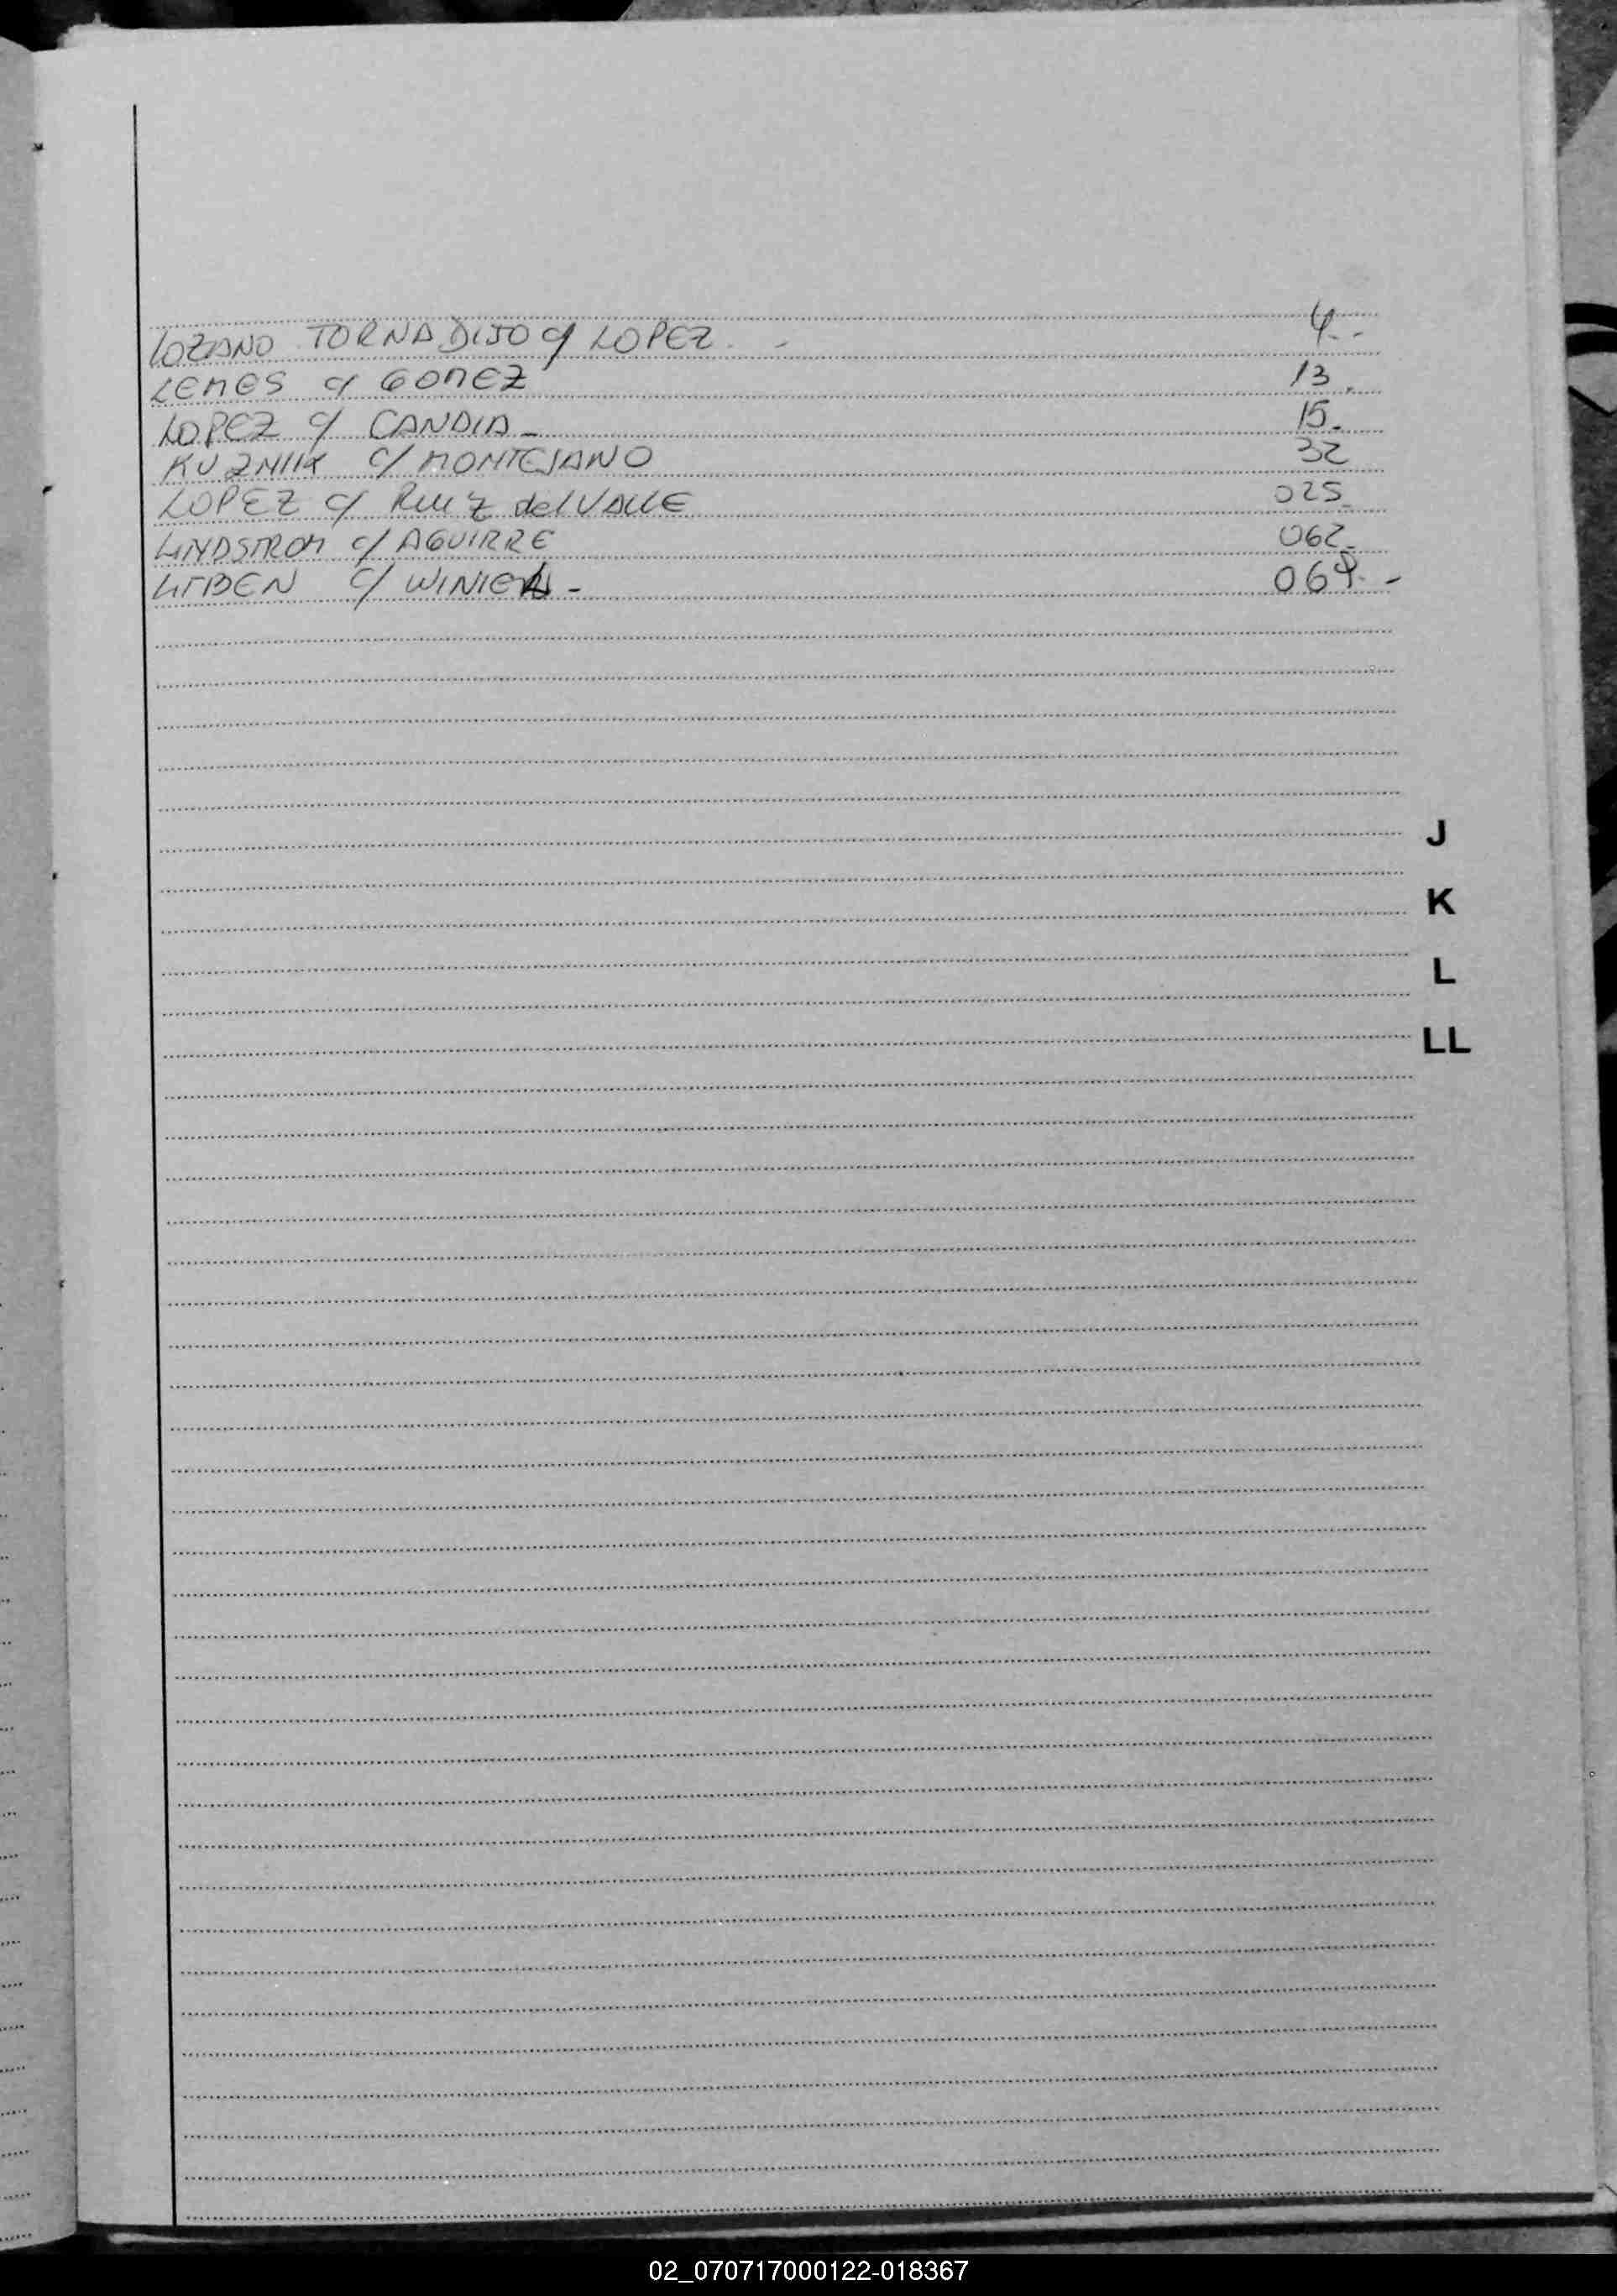 LOZANO TORNADIJO c/ LOPEZ. - 4.-
LEMES c/ GOMEZ 13.
LOPEZ c/ CANDIA- 15.
KUZNIIK c/ MONTEJANO 32
LOPEZ c/ RUIZ del VALLE 025
LINDSTROM c/ AGUIRRE 062-
c/ -
J
K
L
LL
02_070717000122-018367